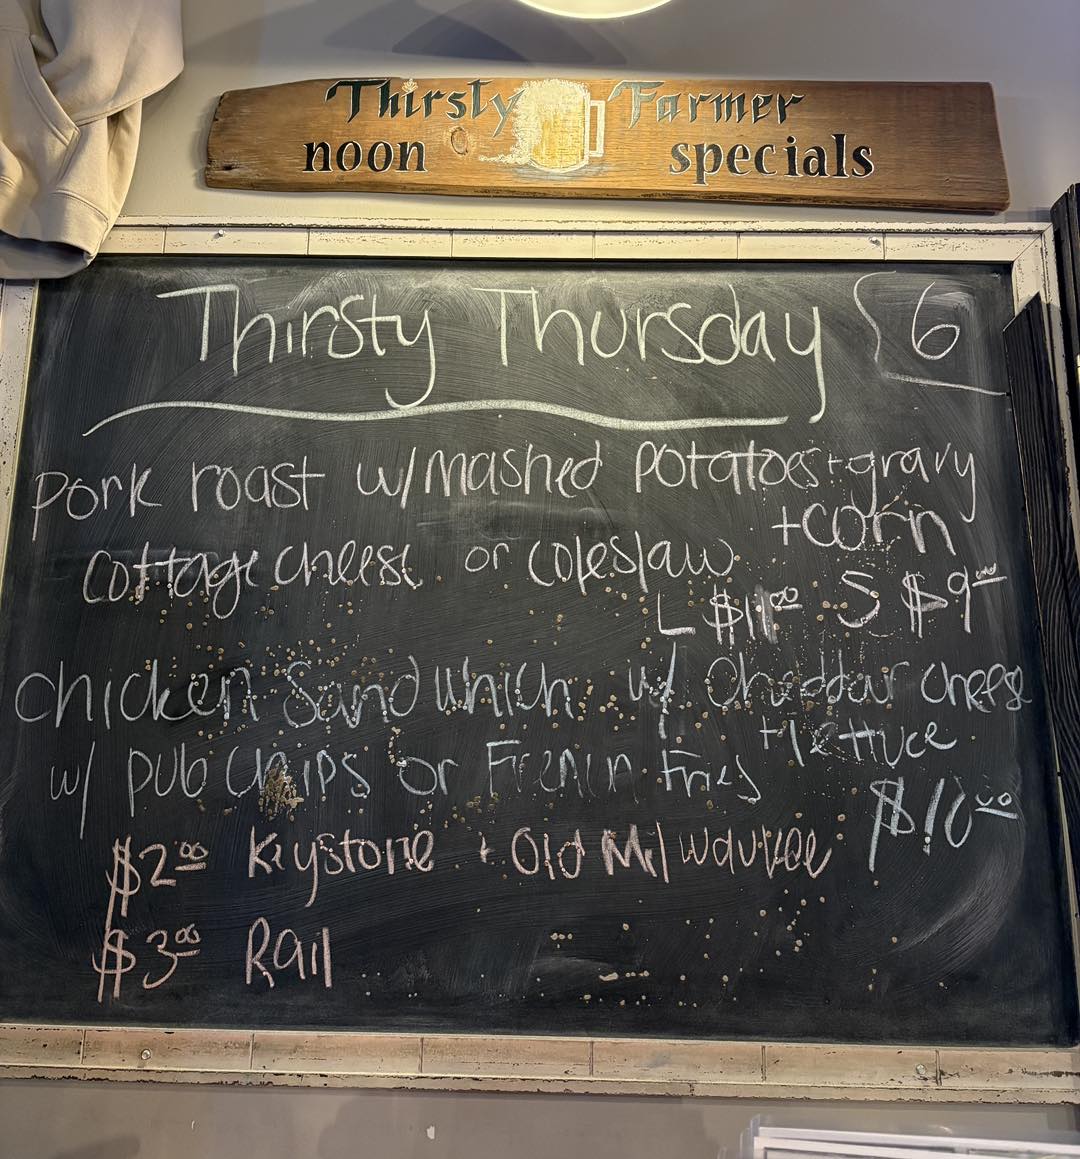 Thirsty Farmer
noon specials
Thirsty Thursday 6
Pork roast w/ mashed potatoes + gravy
+ corn
cottage cheese or coleslaw
L $11.00 S $9.00
Chicken Sandwhich w/ Cheddar cheese
+ lettuce
w/ pub Chips or French Fries
$10.00
$2.00 Keystone + Old Milwaukee
$3.00 Rail